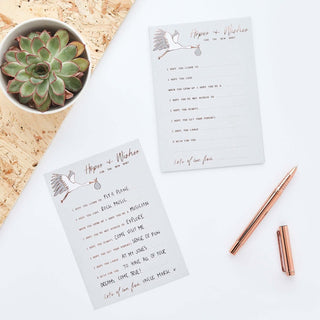 Hopes & Wishes
FOR THE NEW BABY
I HOPE YOU LEARN TO
I HOPE YOU LOVE
WHEN YOU GROW UP I HOPE YOU'RE A
I HOPE YOU'RE NOT AFRAID TO
I HOPE YOU ALWAYS
I HOPE YOU GET YOUR PARENTS
I HOPE YOU LAUGH
I WISH FOR YOU
Lots of love from
Hopes & Wishes
FOR THE NEW BABY
I HOPE YOU LEARN TO PLAY PIANO
I HOPE YOU LOVE ROCK MUSIC
WHEN YOU GROW UP I HOPE YOU'RE A MUSICIAN
I HOPE YOU'RE NOT AFRAID TO EXPLORE
I HOPE YOU ALWAYS COME VISIT ME
I HOPE YOU GET YOUR PARENTS SENSE OF FUN
I HOPE YOU LAUGH AT MY JOKES
I WISH FOR YOU TO HAVE ALL OF YOUR
DREAMS COME TRUE!
Lots of love from UNCLE MARK X